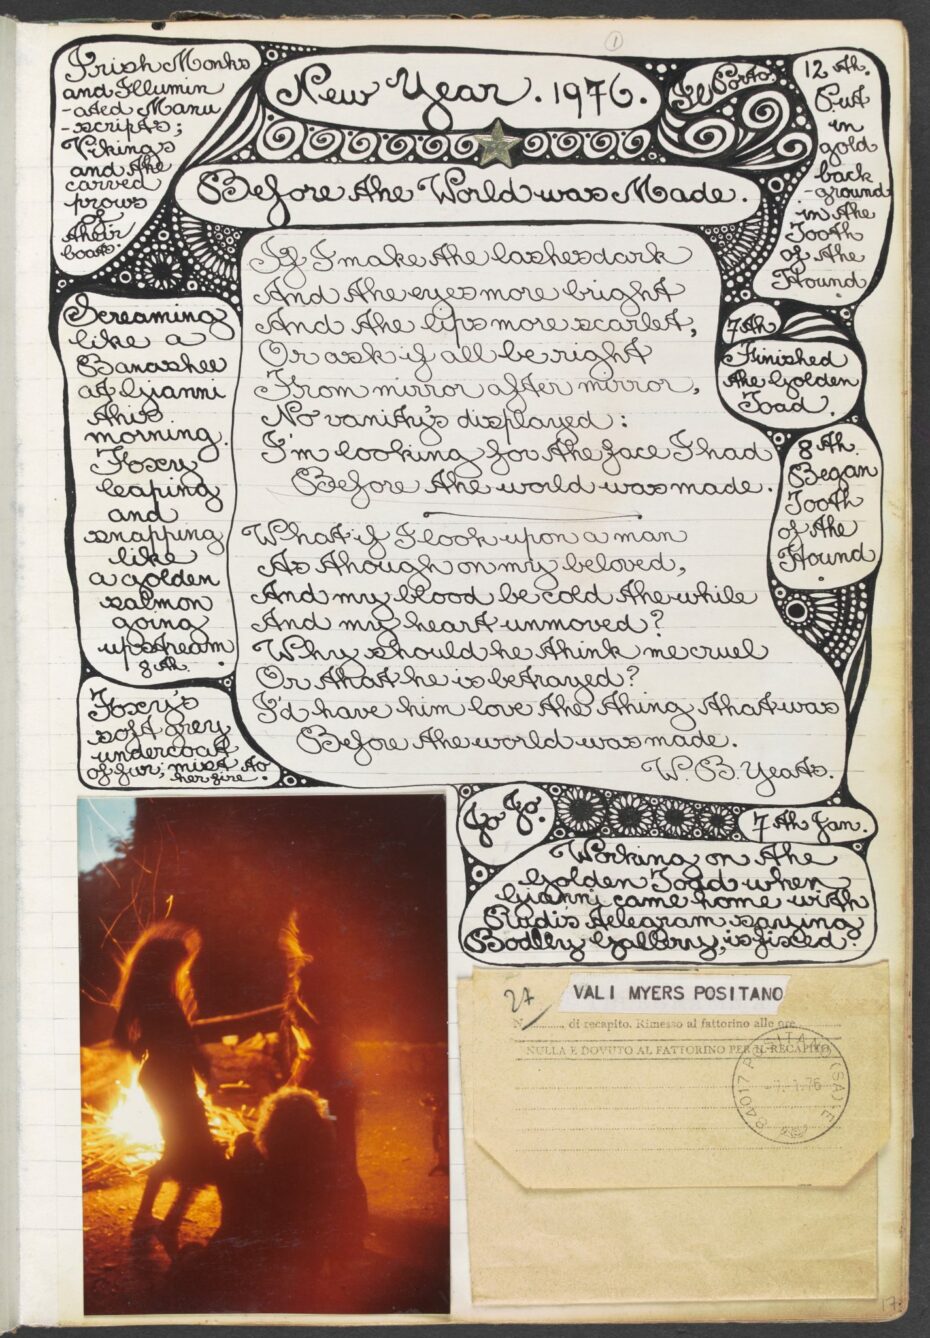 1
New Year. 1976.
Il Porto.
Before the World was Made.
Irish Monks
and Illumin
-ated Manu
-scripts;
Vikings
and the
carved
prows
of
their
boats.
12 th.
Put
in
gold
back
-ground
in the
Tooth
of the
Hound.
If I make the lashes dark
And the eyes more bright
And the lips more scarlet,
Or ask if all be right
From mirror after mirror,
No vanity's displayed:
I'm looking for the face I had
Before the world was made.
What if I look upon a man
As though on my beloved,
And my blood be cold the while
And my heart unmoved?
Why should he think me cruel
Or that he is betrayed?
I'd have him love the thing that was
Before the world was made.
W. B. Yeats.
Screaming
like a
Banashee
at Gianni
this
morning.
Foxy
leaping
and
snapping
like
a golden
salmon
going
upstream
8 th.
Foxy's
soft grey
undercoat
of fur; mixt to
her fire.
7 th
Finished
the Golden
Toad.
8 th.
Began
Tooth
of the
Hound
7 th Jan.
Working on the
Golden Toad when
Gianni came home with
Rudi's telegram saying
Bodley Gallery, is fixed?
27
VALI MYERS POSITANO
N. di recapito. Rimesso al fattorino alle ore
NULLA È DOVUTO AL FATTORINO PER IL RECAPITO
84017 POSITANO (SA) E
-7.-1.76
17